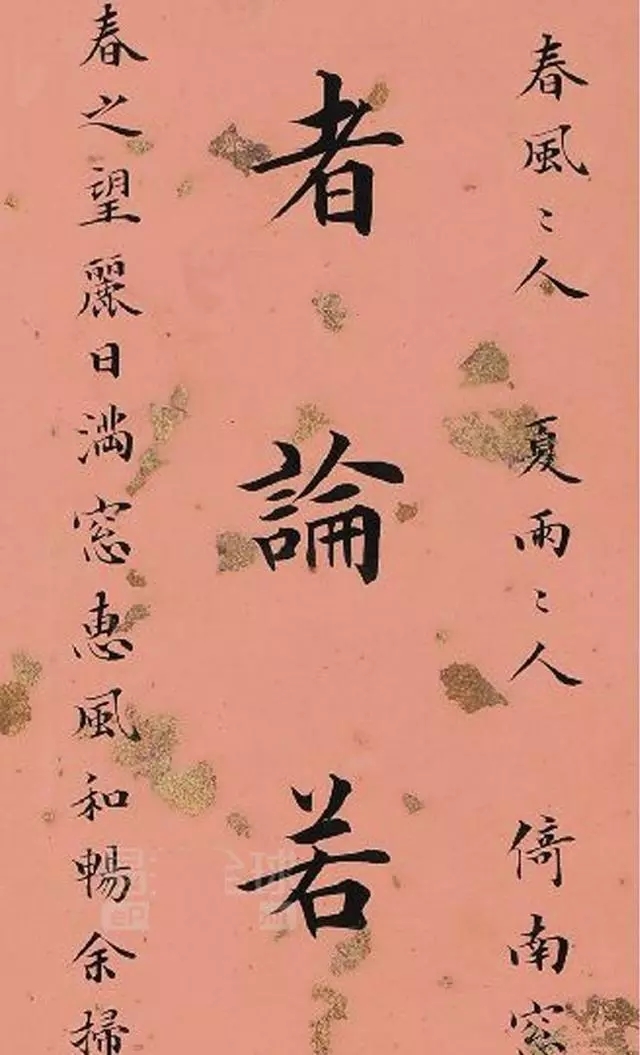 春風〻人　夏雨〻人　倚南窓
者論若
春之望麗日满窓惠風和暢余掃